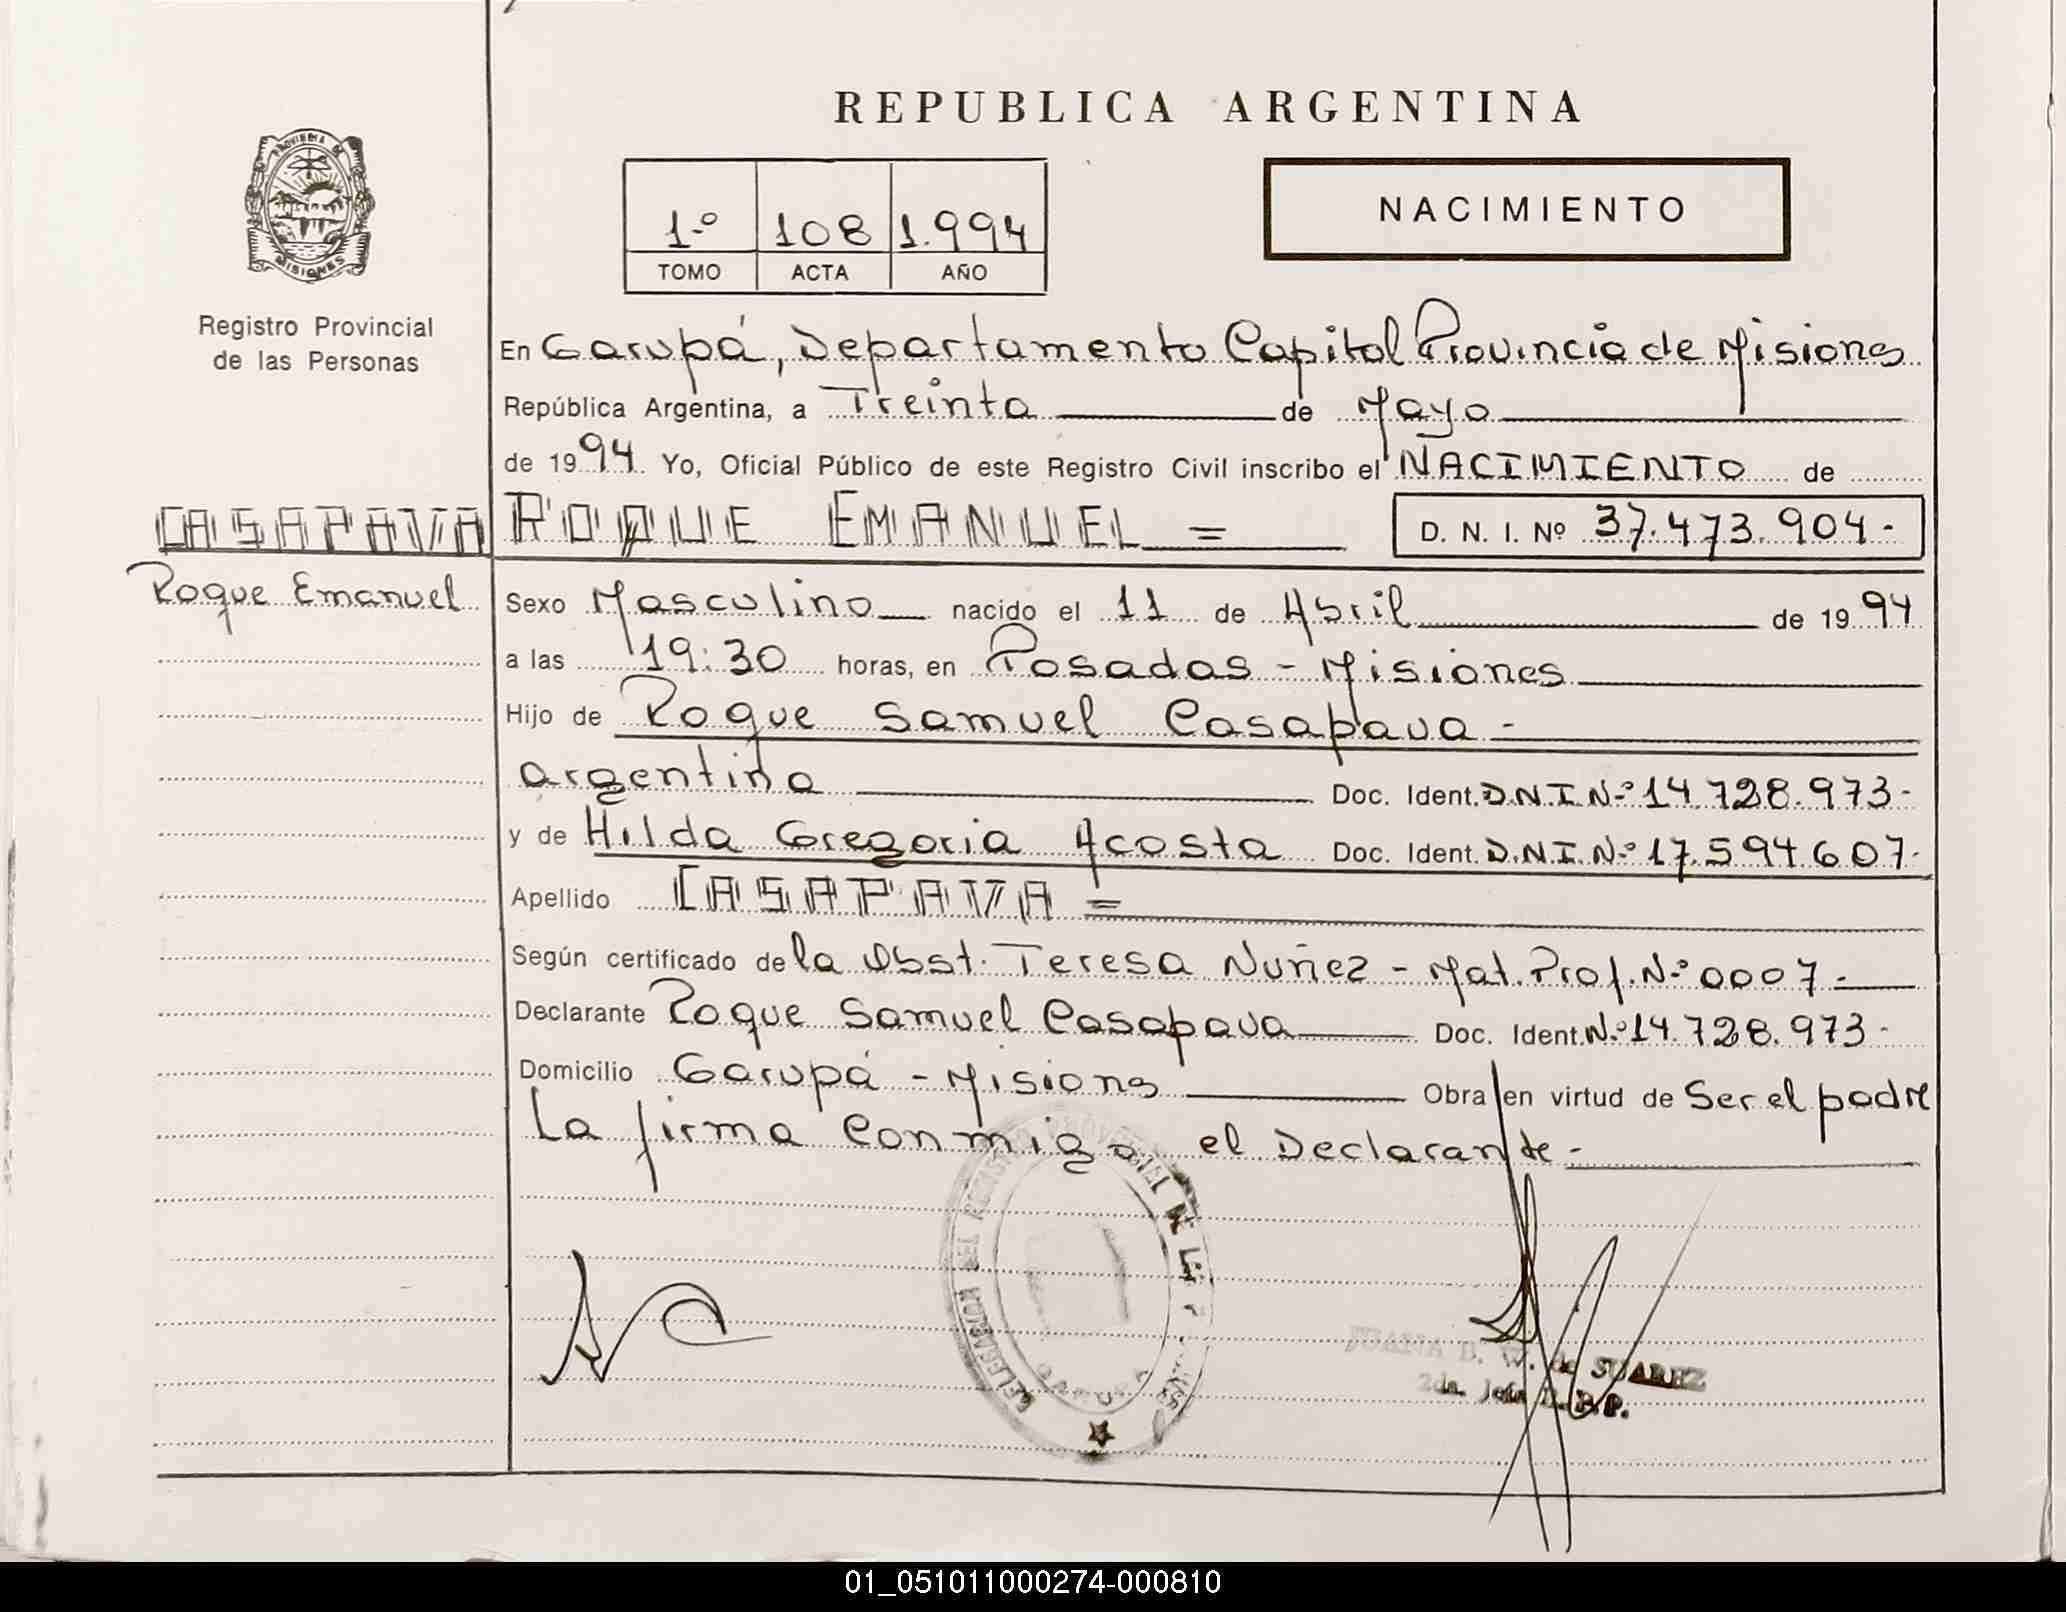 REPUBLICA ARGENTINA
PROVINCIA DE
MISIONES
Registro Provincial
de las Personas
1.º 108 1.994
TOMO ACTA AÑO
NACIMIENTO
En Garupá, Departamento Capital Provincia de Misiones
República Argentina, a Treinta de Mayo
de 1994. Yo, Oficial Público de este Registro Civil inscribo el NACIMIENTO de
CASAPAVA
Roque Emanuel
ROQUE EMANUEL =
D. N. I. Nº 37.473.904.-
Sexo Masculino nacido el 11 de Abril de 1994
a las 19:30 horas, en Posadas - Misiones
Hijo de Roque Samuel Casapava -
argentino Doc. Ident. D.N.I.N.º 14.728.973-
y de Hilda Gregoria Acosta Doc. Ident. D.N.I.N.º 17.594.607.
Apellido CASAPAVA =
Según certificado de la Obst. Teresa Nuñez - Mat. Prof. N.º 0007-
Declarante Roque Samuel Casapava Doc. Ident. N.º 14.728.973-
Domicilio Garupá - Misiones Obra en virtud de Ser el padre
La firma Conmigo, el Declarante-
DELEGACION DEL REGISTRO PROVINCIAL
GARUPA
JUANA B. W. de SUAREZ
2da. Jefa R.P.P.
01_051011000274-000810